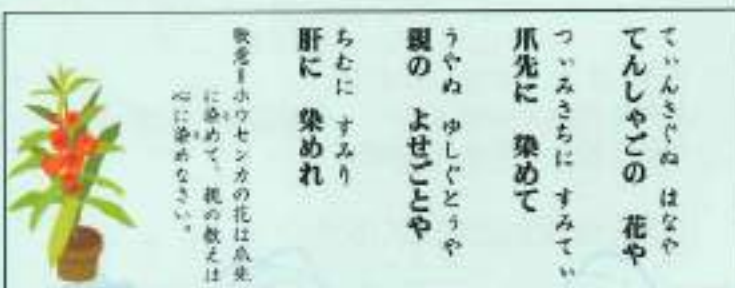 てぃんさぐぬ はなや
てんしゃごの 花や
つぃみさちに すみてぃ
爪先に 染めて
うやぬ ゆしぐとぅや
親の よせごとや
ちむに すみり
肝に 染めれ
歌意＝ホウセンカの花は爪先
に染めて、親の教えは
心に染めなさい。